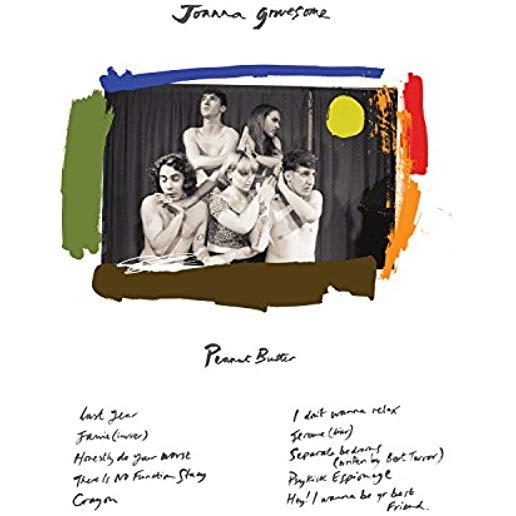 Joanna gruesome
Peanut Butter
Last Year
Jamie (luvver)
Honestly do your worst
There Is No Function Stacy
Crayon
I don't wanna relax
Jerome (liar)
Separate bedrooms
(written by Bert Terror)
Psykick Espionage
Hey! I wanna be yr best
Friend.